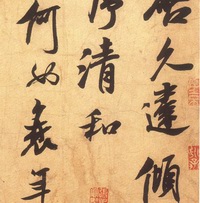 久違傾
序清和
何如衰年